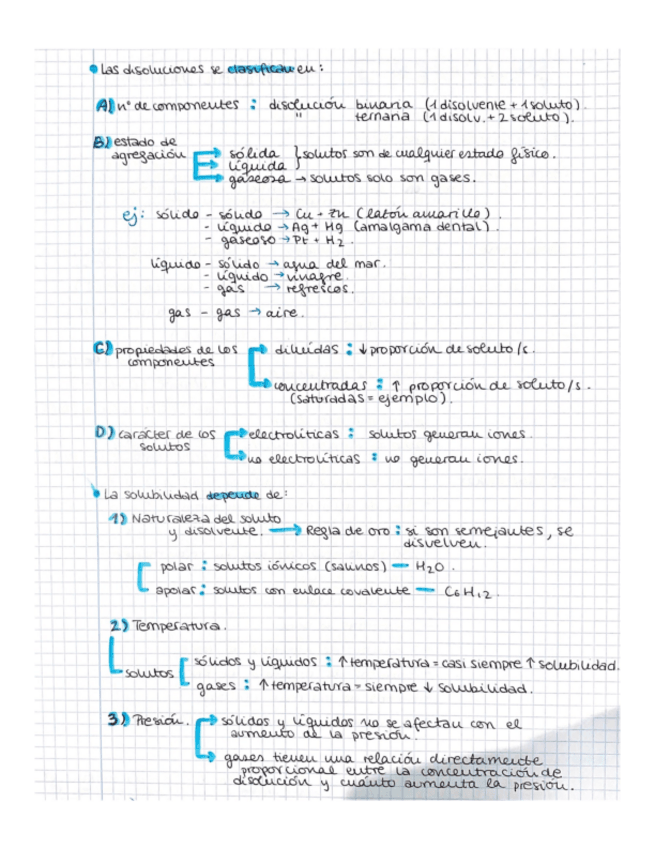 • Las disoluciones se clasifican en :
A) nº de componentes : disolución binaria (1 disolvente + 1 soluto).
" ternaria (1 disolv. + 2 soluto).
B) estado de
agregación → sólida } solutos son de cualquier estado físico.
→ líquida }
→ gaseosa → solutos solo son gases.
ej: sólido - sólido → Cu + Zn (latón amarillo).
- líquido → Ag + Hg (amalgama dental).
- gaseoso → Pt + H2.
líquido - sólido → agua del mar.
- líquido → vinagre.
- gas → refrescos.
gas - gas → aire.
C) propiedades de los → diluidas : ↓ proporción de soluto/s.
componentes
→ concentradas : ↑ proporción de soluto/s.
(saturadas = ejemplo).
D) carácter de los → electrolíticas : solutos generan iones.
solutos
→ no electrolíticas : no generan iones.
• La solubilidad depende de:
1) Naturaleza del soluto
y disolvente. → Regla de oro : si son semejantes, se
disuelven.
polar : solutos iónicos (salinos) — H2O.
apolar : solutos con enlace covalente — C6H12.
2) Temperatura.
sólidos y líquidos : ↑ temperatura = casi siempre ↑ solubilidad.
solutos
gases : ↑ temperatura = siempre ↓ solubilidad.
3) Presión. → sólidos y líquidos no se afectan con el
aumento de la presión.
→ gases tienen una relación directamente
proporcional entre la concentración de
disolución y cuánto aumenta la presión.